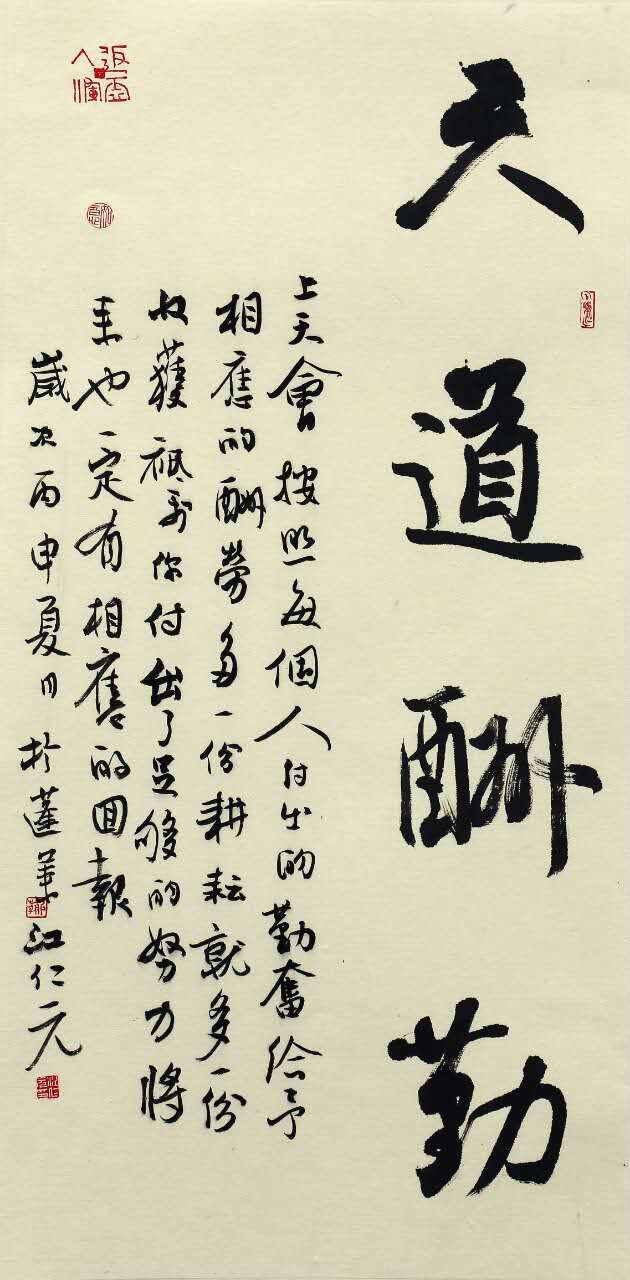 天道酬勤
上天會按照每個人付出的勤奮給予
相應的酬勞多一份耕耘就多一份
收獲祗要你付出了足够的努力將
来也一定有相應的回報
歲次丙申夏日於江仁元